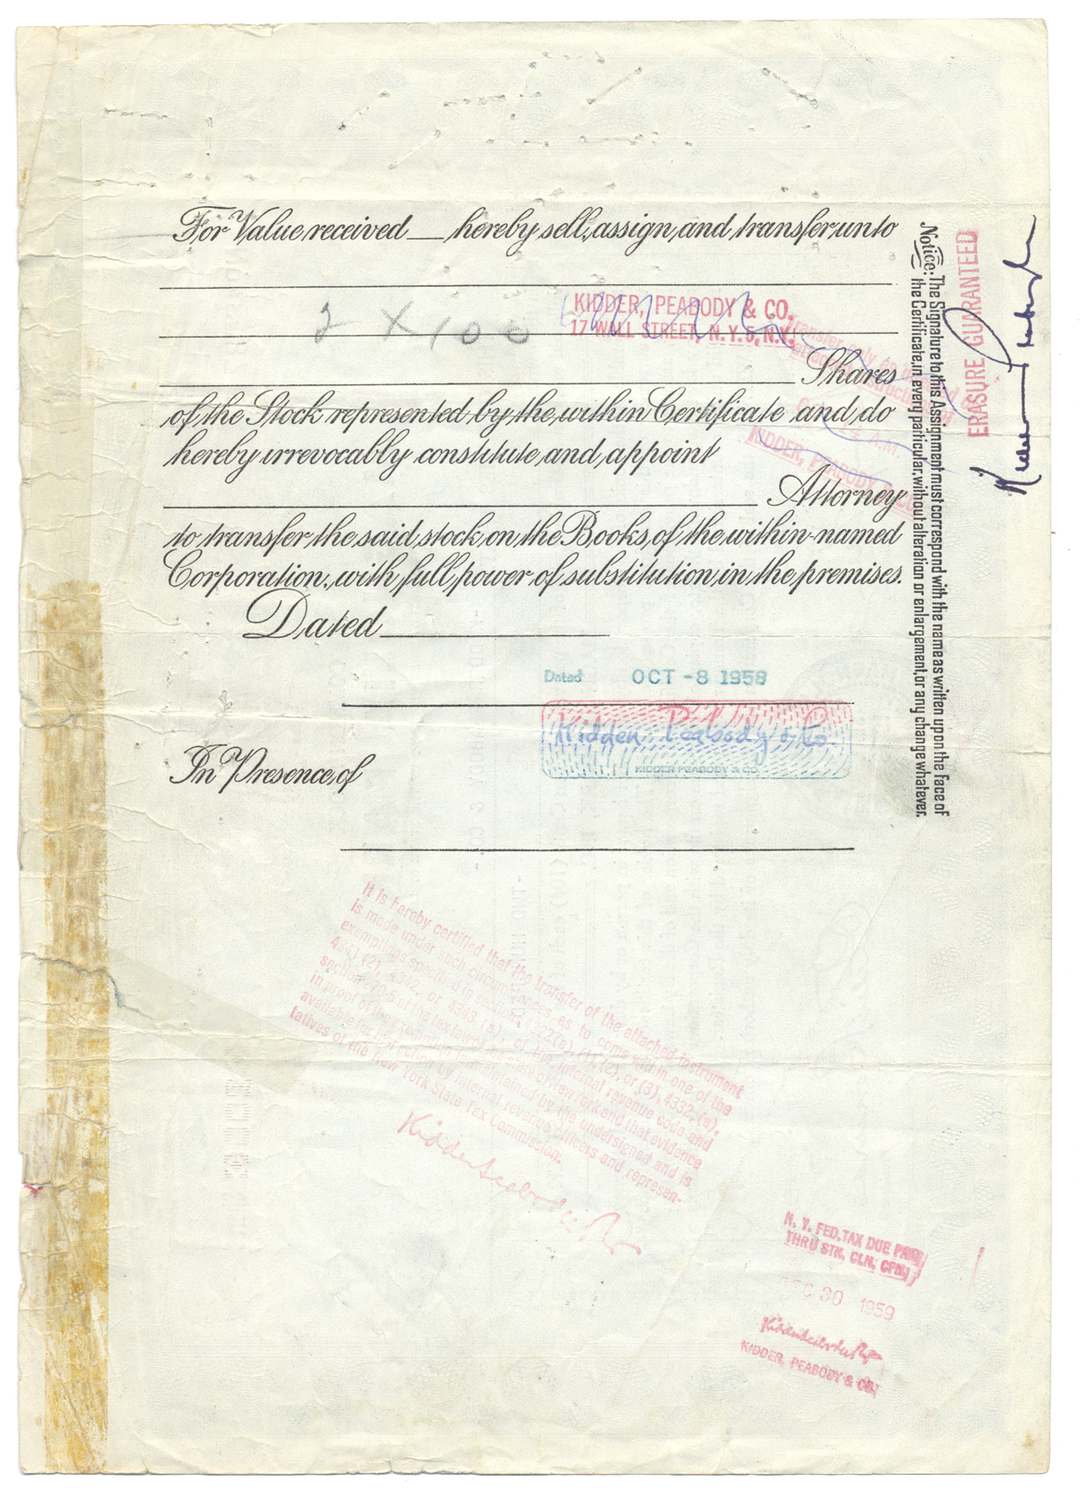 For Value received ___ hereby sell, assign, and transfer unto
2 X 100
KIDDER, PEABODY & CO.
17 WALL STREET, N. Y. 5, N.Y.
Shares
of the Stock represented by the within Certificate and do
hereby irrevocably constitute and appoint
KIDDER, PEABODY
Attorney
to transfer the said stock on the Books of the within-named
Corporation, with full power of substitution in the premises.
Dated
Dated OCT -8 1958
Kidder, Peabody & Co
KIDDER PEABODY & CO.
In Presence of
Notice: The Signature to this Assignment must correspond with the name as written upon the face of
the Certificate, in every particular, without alteration or enlargement, or any change whatever.
ERASURE GUARANTEED
It is hereby certified that the transfer of the attached instrument
is made under such circumstances as to come within one of the
exemptions specified in sections (1), (2), or (3), 4332, (a),
(2), 4342, or 4343, (a), of the internal revenue code and
section 270.5 of the tax law of the state of New York and that evidence
in proof of the exemption is by the undersigned and is
available for inspection by internal revenue officers and represen-
tatives of the New York State Tax Commission.
Kidder Peabody & Co
N. Y. FED. TAX DUE PAID
THRU STK. CLN. CPN.
DEC 30 1959
KIDDER, PEABODY & CO.